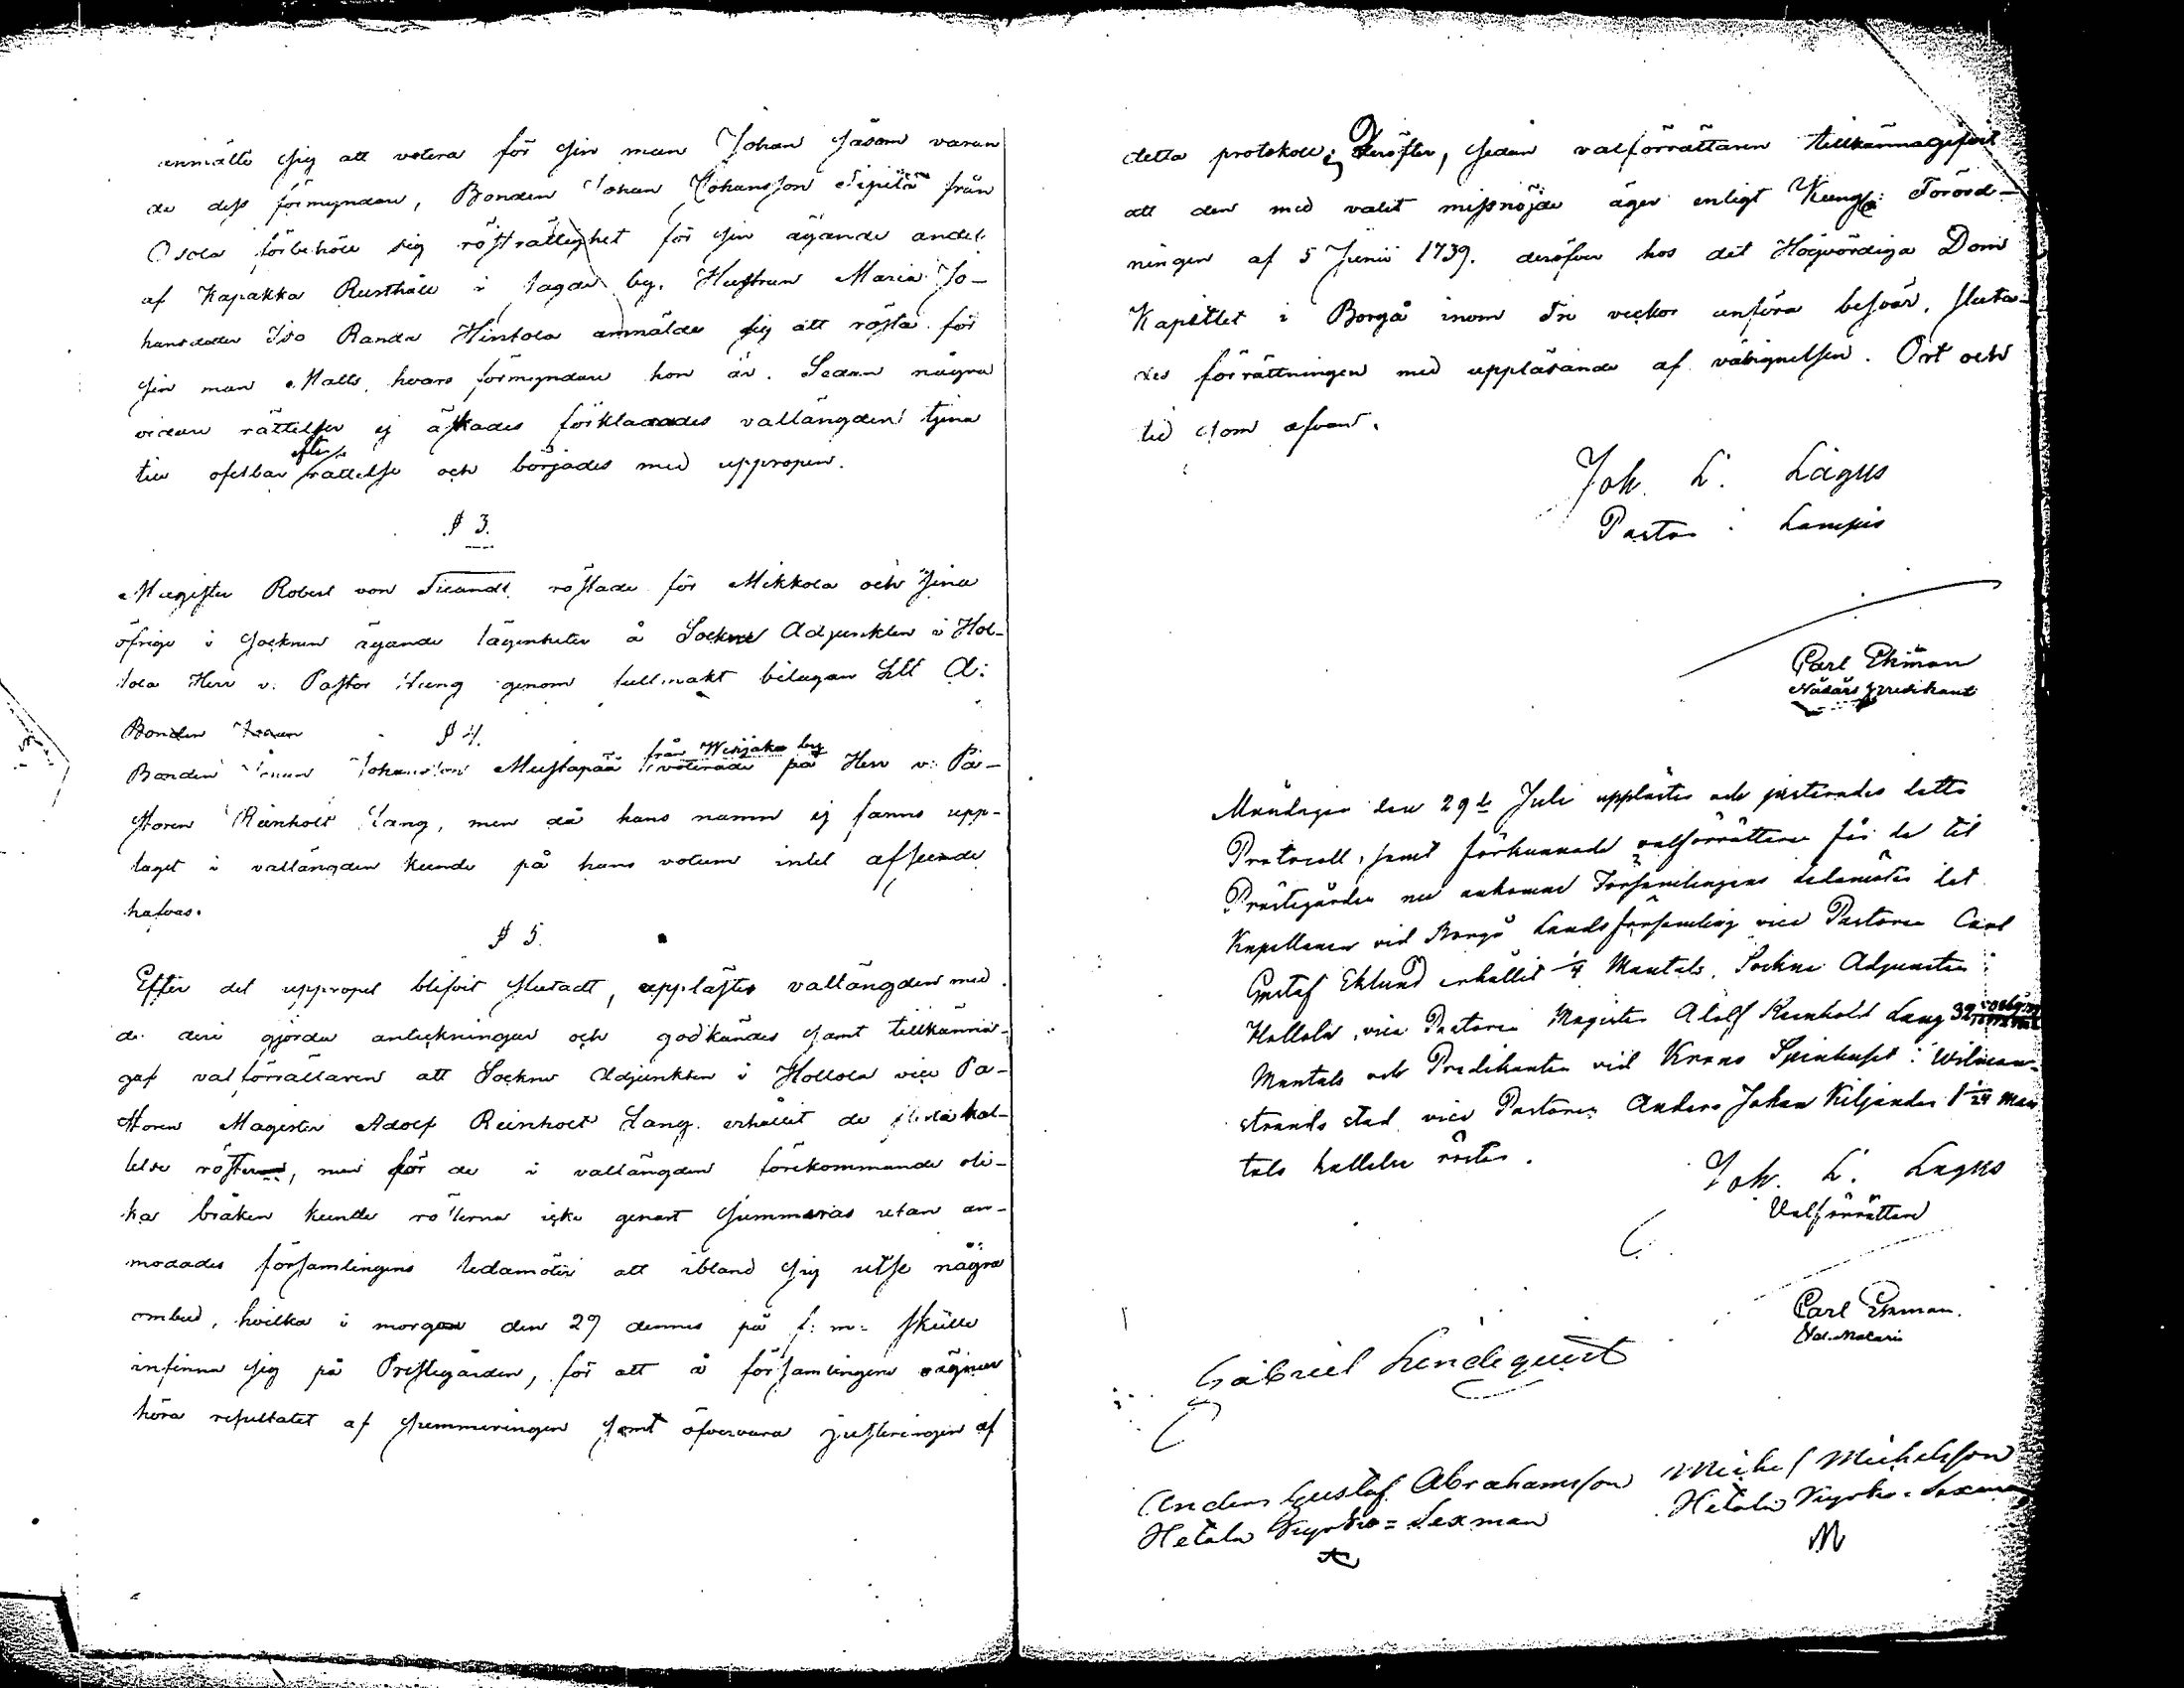 anmälte sig att votera för sin man Johan såsom varan
de dess förmyndare, Bonden Johan Johansson Sipilä från
Osola förbehöll sig rösträttighet för sin ägande andel
af Kapakka Rusthåll i sagde by. Hustrun Maria Jo-
hansdotter Iso Randa Hintola anmälde sig att rösta för
sin man Matts, hvars förmyndare hon är. Sedan några
vidare rättelser ej äskades förklarades vallängden tjena
till ofelbar efterrättelse och börjades med uppropen.
§ 3.
Magister Robert von röstade för Mikkola och sina
öfriga i Socknen ägande lägenheter å Sockne Adjunkten i Hol-
lola Herr v. Pastor Lang genom fullmakt bilagan Litt A:
Bonden Johan § 4.
Bonden Johan Johansson Mustapää från Wesijako by voterade på Herr v: Pa-
storen Reinholt Lang, men då hans namn ej fanns upp-
taget i vallängden kunde på hans votum intet afseende
hafvas.
§ 5.
Efter det uppropet blifvit slutadt, upplästes vallängden med
de deri gjorda anteckningar och godkändes samt tillkänna-
gaf valförrättaren att Sockne Adjunkten i Hollola vice Pa-
storen Magister Adolf Reinholt Lang erhållit de flesta kal-
lelse röster, men för de i vallängden förekommande oli-
ka bråken kunde rösterna icke genast summeras utan an-
modades församlingens ledamöter att ibland sig utse några
ombud, hvilka i morgon den 29 dennes på f: m: skulle
infinna sig på Prestegården, för att å församlingens vägnar
höra resultatet af summeringen samt öfvervara justeringen af
detta protokoll; Derefter, sedan valförrättaren tillkännagifvit
att den med valet missnöjde äger enligt Kungl: Förord-
ningen af 5 Junii 1739. deröfver hos det Högvördiga Dom
Kapitlet i Borgå inom tre veckor anföra besvär, sluta-
des förrättningen med uppläsande af välsignelsen. Ort och
tid som ofvan.
Joh. L. Lagus
Pastor i Lampis
Carl Ekman
Nådårs predikant
Måndagen den 29de Juli upplästes och justerades detta
Protocoll, samt förkunnade valförrättaren för de til
Prästegården nu ankomne Församlingens ledamöter det
Kapellanen vid Borgå Landsförsamling vice Pastoren Carl
Gustaf Eklund erhållit 1/4 Mantals, Sockne Adjuncten i
Hollola, vice Pastoren Magister Adolf Reinhold Lang 32
Mantals och Predikanten vid Krono Spinhuset i Wilman-
strands stad vice Pastoren Anders Johan Kiljander 1 1/24 Man
tals kallelse röster.
Joh. L. Lagus
Valförrättare
Carl Ekman.
Val-Notarie
Gabriel Lindequist
Anders Gustaf Abrahamsson
Hetala Kyrko=Sexman
Michel Michelsson
Hetala Kyrko=Sexman
M